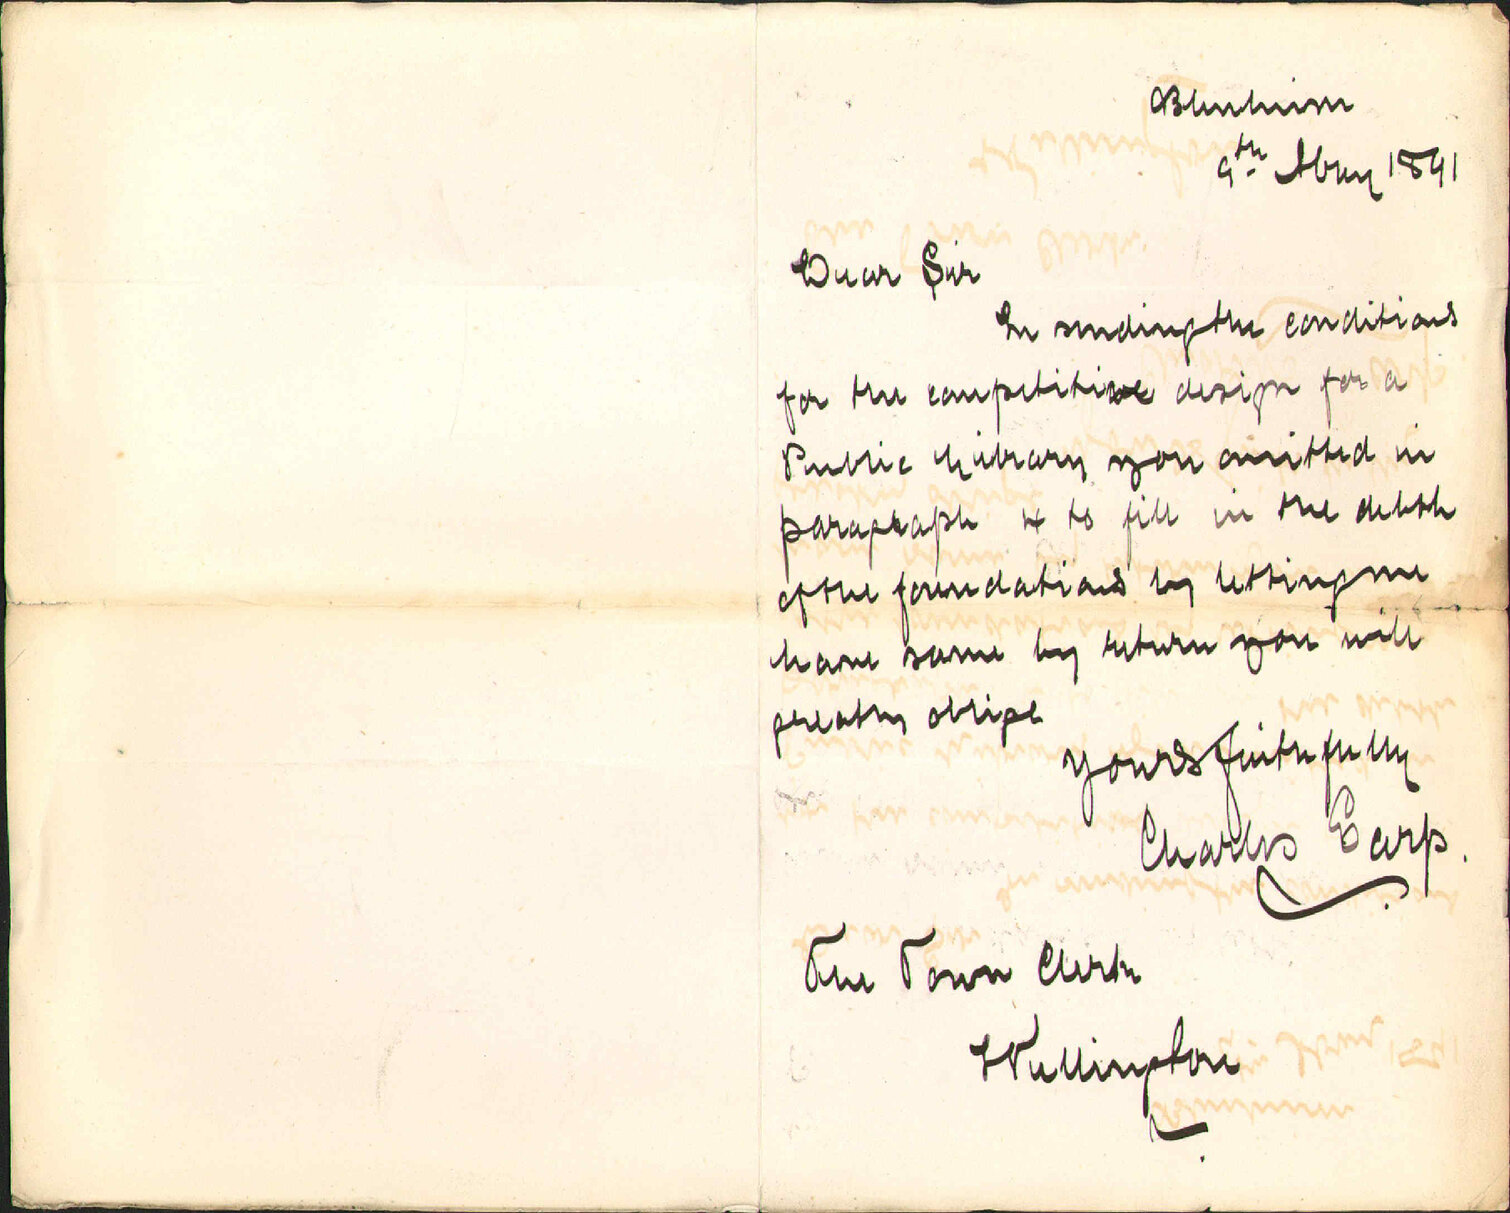 Blenheim
9th May 1891
Dear Sir
In sending the conditions
for the competitive design for a
Public Library you omitted in
paragraph 4 to fill in the debth
of the foundations by letting me
have same by return you will
greatly oblige
Yours faithfully
Charles Earp.
The Town Clerk
Wellington